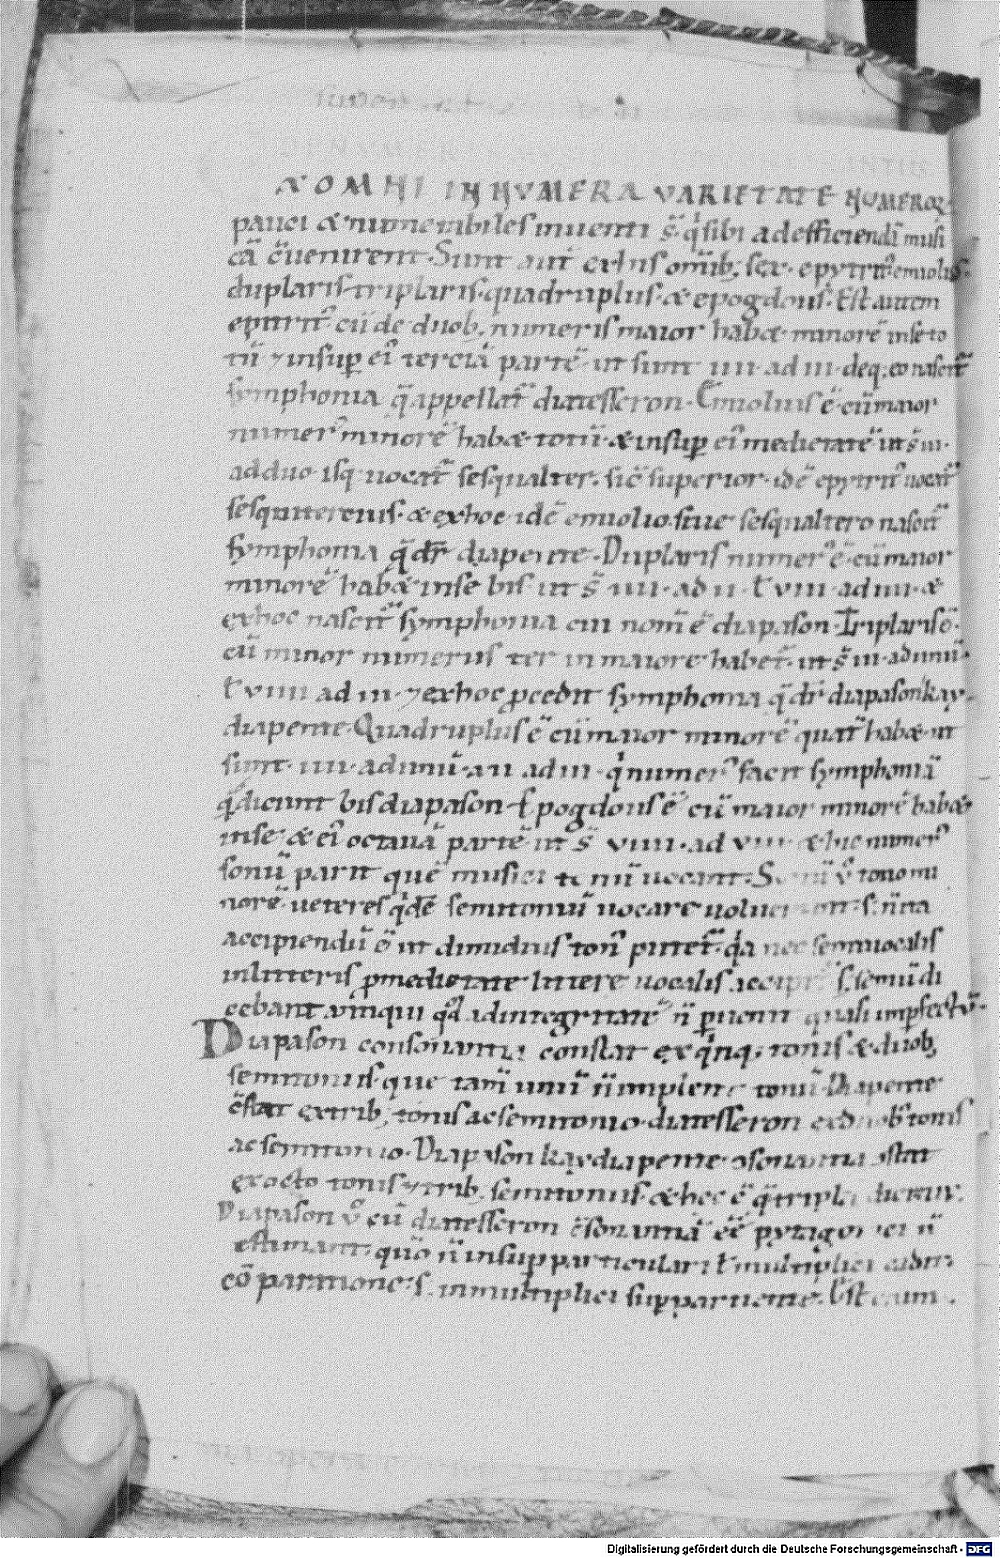 EX OMNI INNUMERA VARIETATE NUMEROR
pauci & numerabiles inuenti s̄ q̇ sibi ad efficiendā musi
cā c̄uenirent. Sunt aut̄ ex his om̄ib; sex. epytrit᷒ emiolius.
duplaris. triplaris. quadruplus. & epogdous. Est autem
epitrit᷒ cū de duob; numeris maior habet minorē inse to
tū ⁊ insup ei᷒ terciā partē ut sunt IIII. ad III. deq; eo nascit̄
symphonia q̄ appellat̄ diatesseron. Emiolius ē cū maior
numer᷒ minorē habet totū. & insup ei᷒ medietatē ut s̄ III.
ad duo. isq; uocat̄ sesqualter. sic̄ superior. idē epytrit᷒ uocat̄
sesquitercius. & ex hoc idē emiolio siue sesqualtero nascit̄
symphonia q̄ dr̄ diapente. Duplaris numer᷒ ē. cū maior
minorē habet inse bis. ut s̄ IIII. ad II. ł VIII. ad IIII. &
ex hoc nascit̄ symphonia cui nom̄ ē diapason. Triplaris ē.
cū minor numerus ter in maiore habet̄. ut s̄ III. ad unū.
ł VIIII ad III. ⁊ ex hoc pcedit symphonia q̄ dr̄ diapason kay
diapente. Quadruplus ē cū maior minorē quat̄ habet. ut
sunt. IIII. ad unū. XII ad III. q̇ numer᷒ facit symphoniā
q̄ dicunt bisdiapason. Epogdous ē cū maior minorē habet
inse. & ei᷒ octauā partē ut s̄ VIIII. ad VIII. & hic numer᷒
sonū parit quē musici tonū uocant. Sonū v̊ tono mi
norē. ueteres q̇dē semitoniū uocare uoluerunt. s; n̄ ita
accipiendū ē ut dimidius ton᷒ putet̄. q̇a nec semiuocalis
in litteris pmedietate littere uocalis accipit̄ s; semū di
cebant. quod ad integritatē n̄ puenit quasi impfectū.
Diapason consonantia constat ex q̇nq; tonis & duob;
semitoniis. que tam̄ unū n̄ implent tonū. Diapente
c̄stat ex trib; tonis ac semitonio. diatesseron ex duob; tonis
ac semitonio. Diapason kay diapente ɔsonantia ɔstat
ex octo tonis ⁊ trib; semitoniis. & hec ē q̄ tripla dicitur.
Diapason v̊ cū diatesseron c̄sonantiā ēē pytagorici n̄
estimant. quō n̄ in supparticulari ł multiplici
cōparatione. s; in multiplici suppartiente. Est enim.
Digitalisierung gefördert durch die Deutsche Forschungsgemeinschaft - DFG